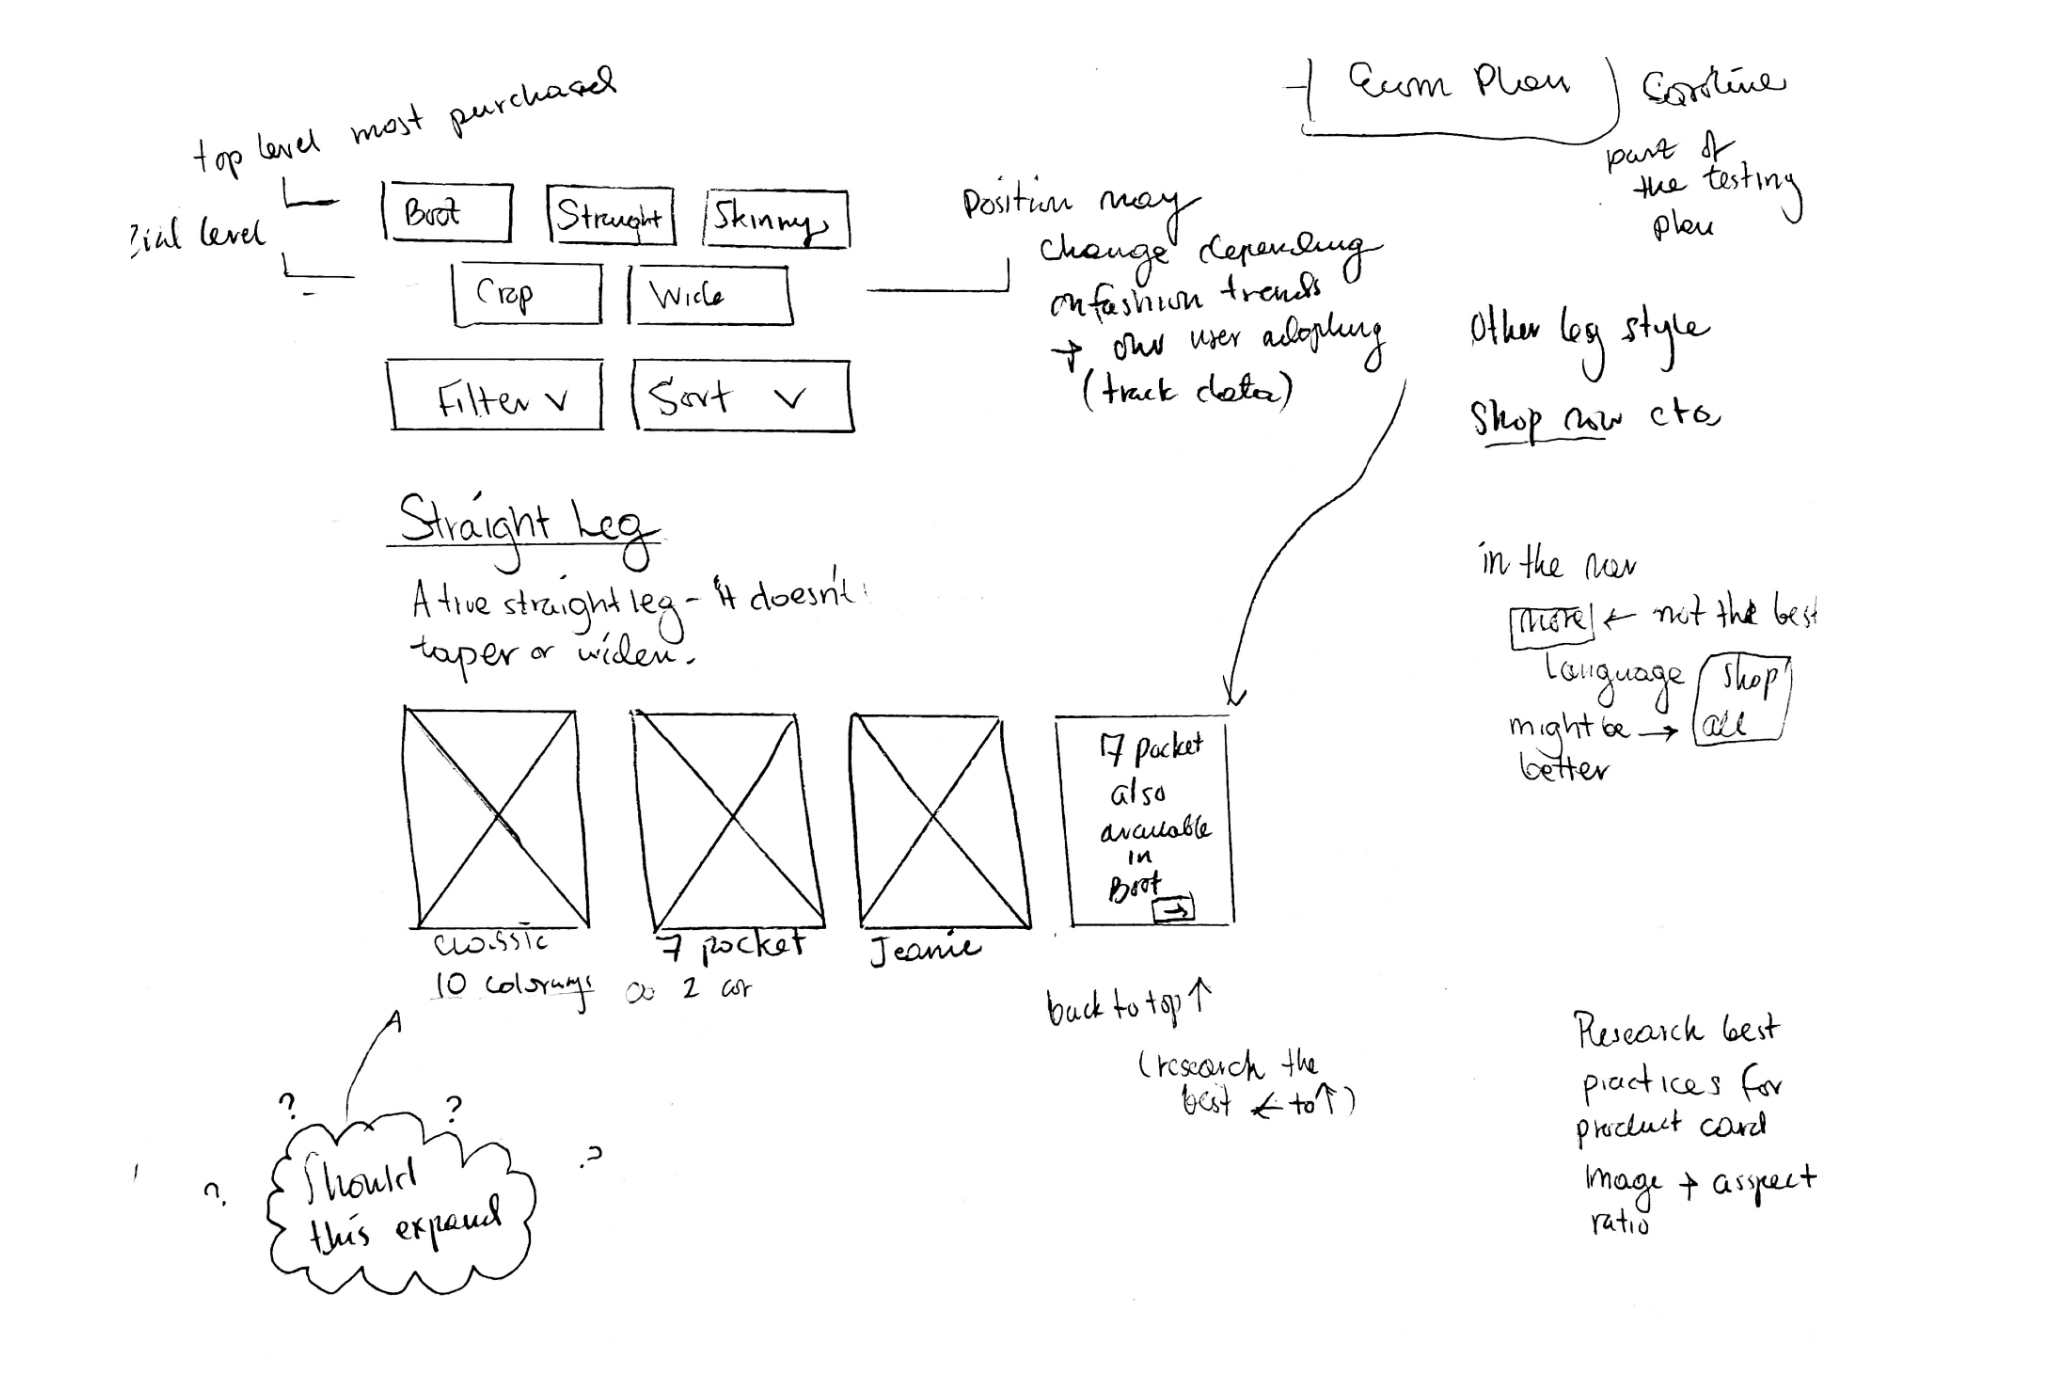 top level most purchased
Boot
Straight
Skinny
level
Crop
Wide
Filter
Sort
Position may
change depending
on fashion trends
→ our user adopting
(track data)
Ecom Plan
Caroline
part of
the testing
plan
Other leg style
Shop now cta
Straight Leg
A true straight leg - it doesn't
taper or widen.
in the nav
more ← not the best
language
might be → shop all
better
classic
10 colorways
7 pocket
2
Jeanie
7 pocket
also
available
in
Boot
→
back to top ↑
(research the
best ← to ↑)
Research best
practices for
product card
Image + asspect
ratio
? ? ? ?
Should
this expand